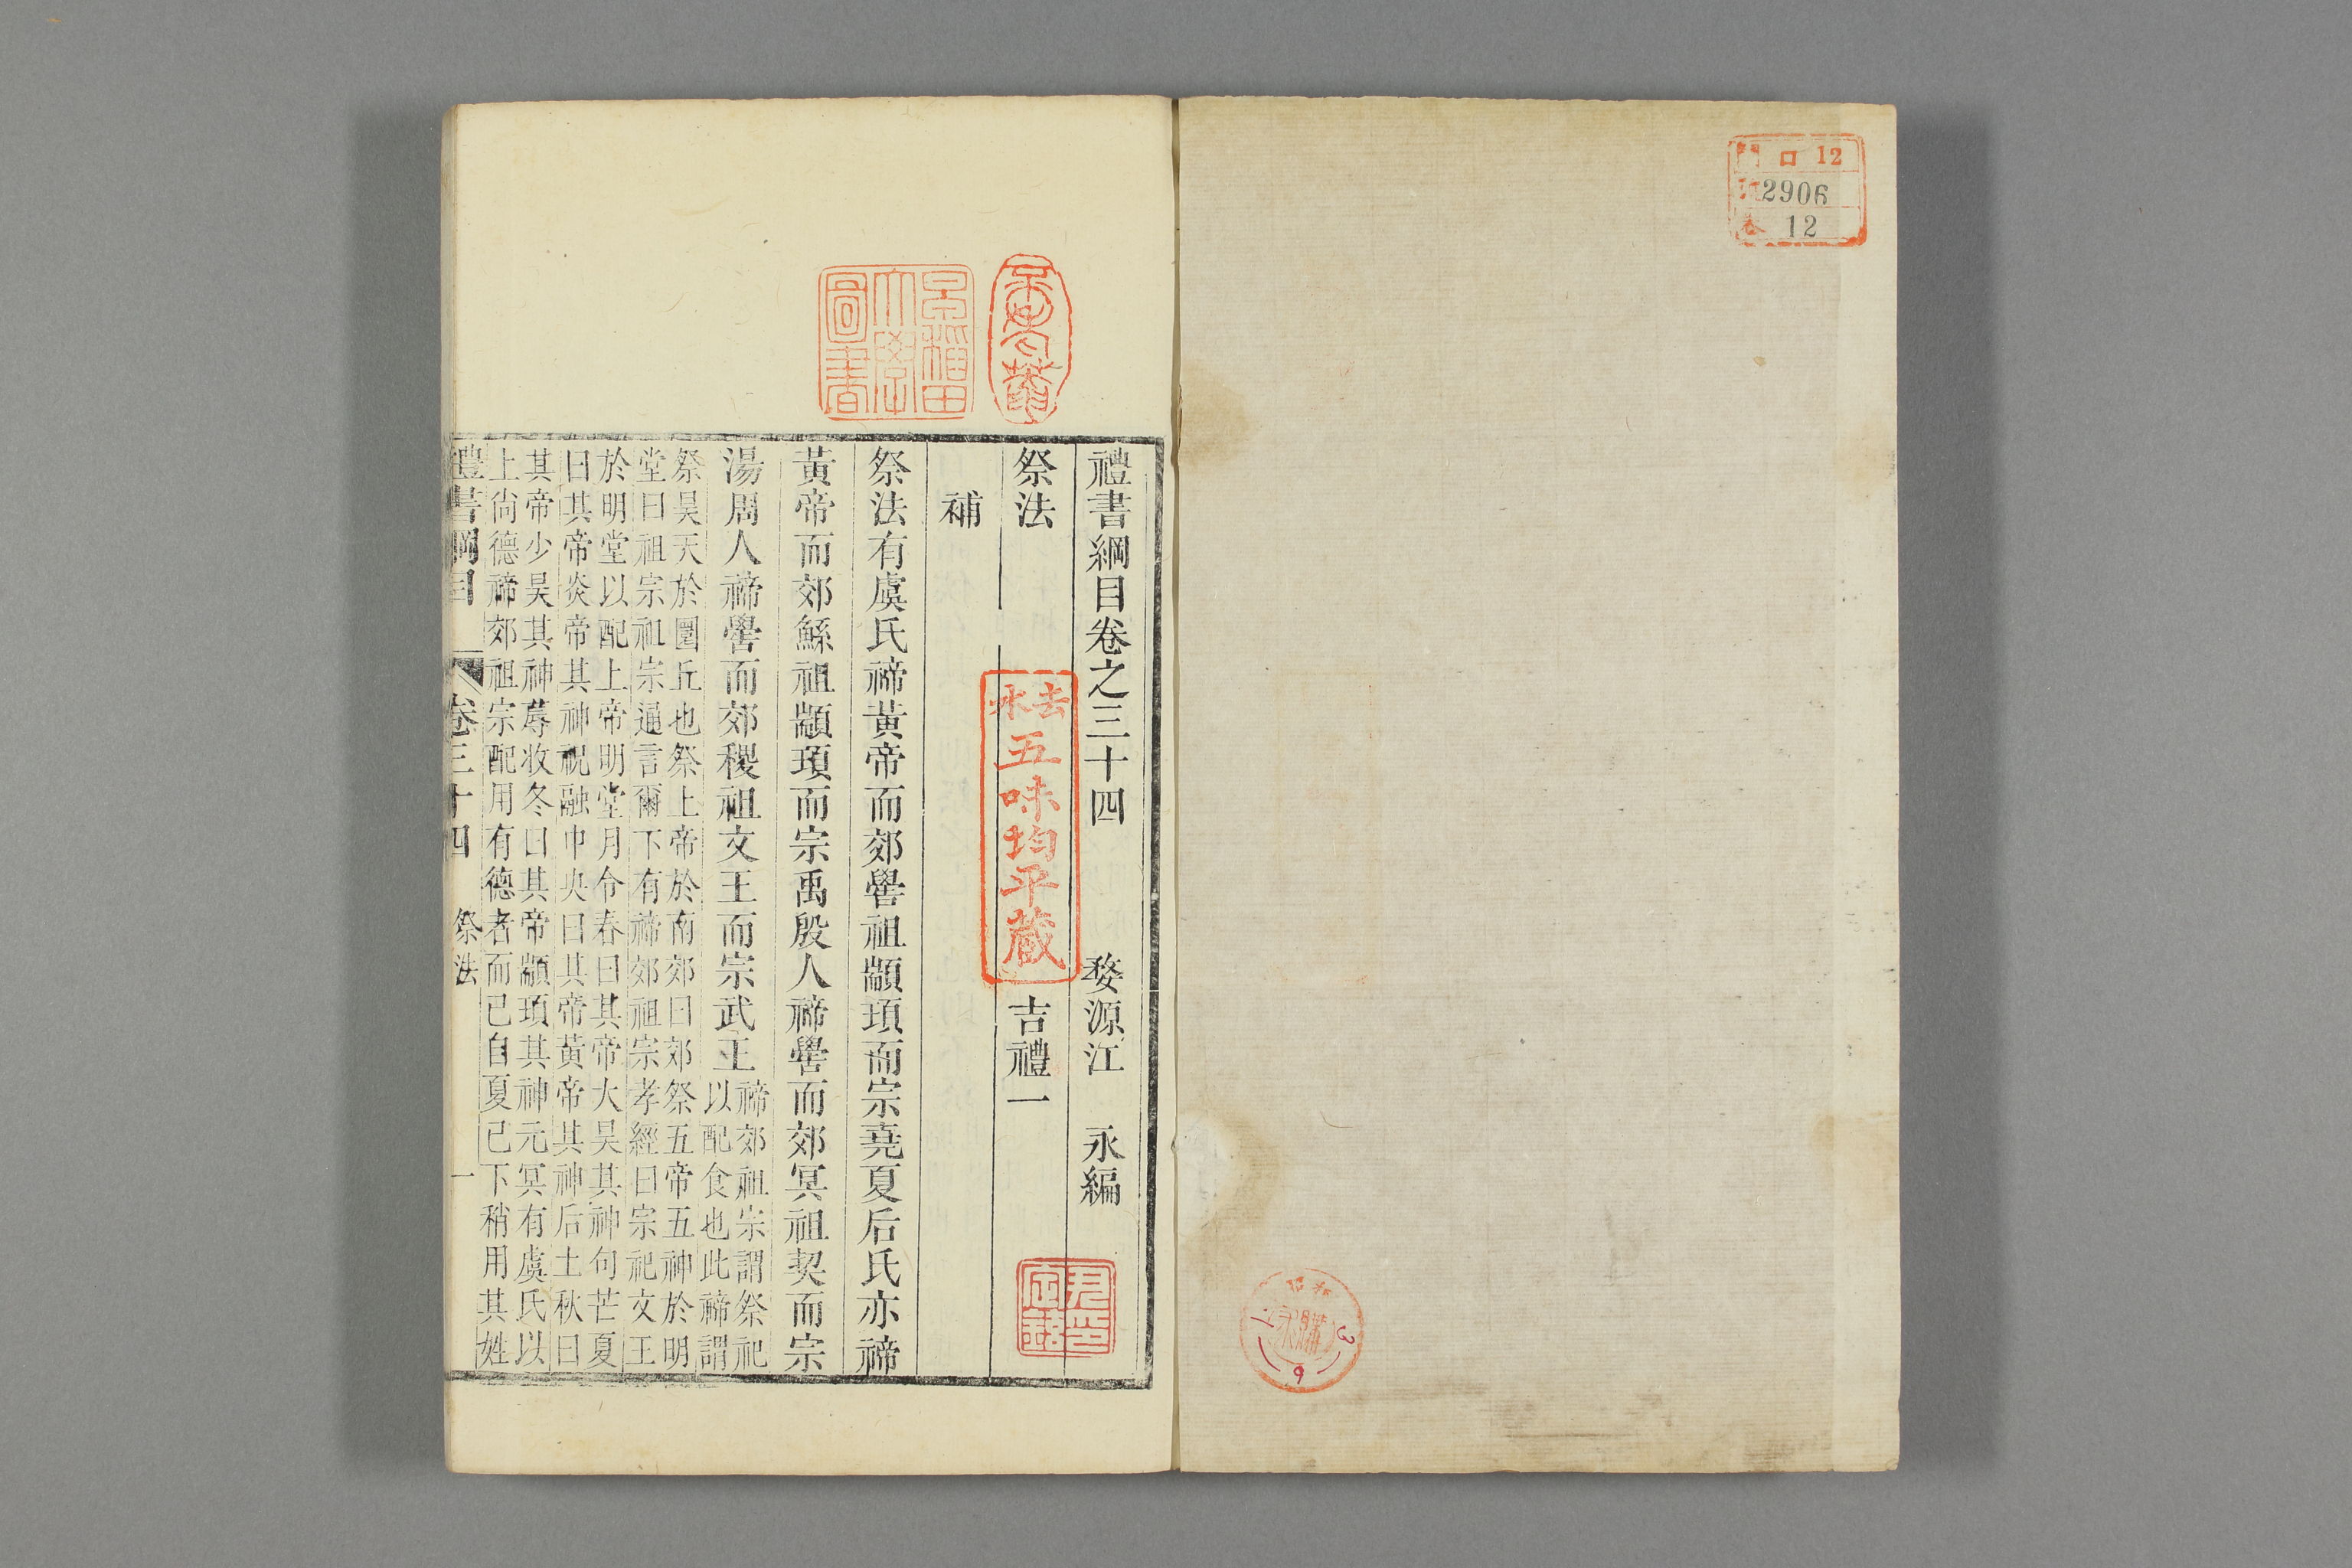 門 ロ 12
號 2906
卷 12
禮書綱目卷之三十四 婺源江 永編
祭法 吉禮一
補
祭法有虞氏禘黃帝而郊嚳祖顓頊而宗堯夏后氏亦禘
黃帝而郊鯀祖顓頊而宗禹殷人禘嚳而郊冥祖契而宗
湯周人禘嚳而郊稷祖文王而宗武王
禘郊祖宗謂祭祀
以配食也此禘謂
祭昊天於圜丘也祭上帝於南郊曰郊祭五帝五神於明
堂曰祖宗祖宗通言爾下有禘郊祖宗孝經曰宗祀文王
於明堂以配上帝明堂月令春曰其帝大昊其神句芒夏
曰其帝炎帝其神祝融中央曰其帝黃帝其神后土秋曰
其帝少昊其神蓐收冬曰其帝顓頊其神元冥有虞氏以
上尚德禘郊祖宗配用有德者而已自夏已下稍用其姓
禮書綱目 卷三十四 祭法 一
早稻田
大學
圖書
去水
五味均平藏
昭和
購